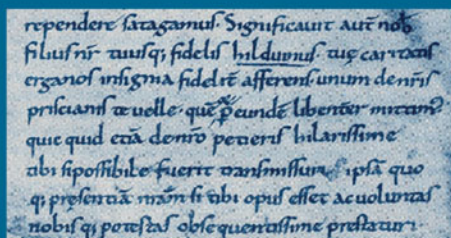 rependere satagamus. Significauit aut̄ nob̄
filius nr̄ tuusq; fidelis hilduinus. tuę caritatis
erga nos insignia fidelit̄ afferens unum de nr̄is
priscianis te uelle. quē p̄ eundē libenter mittim᷒
quicquid etiā de nr̄o petieris hilarissime
tibi si possibile fuerit transmissuri. ipsā quo
q; pręsentiā nr̄am si tibi opus esset ac uoluntas
nobisq; potestas obsequentissime prestaturi.